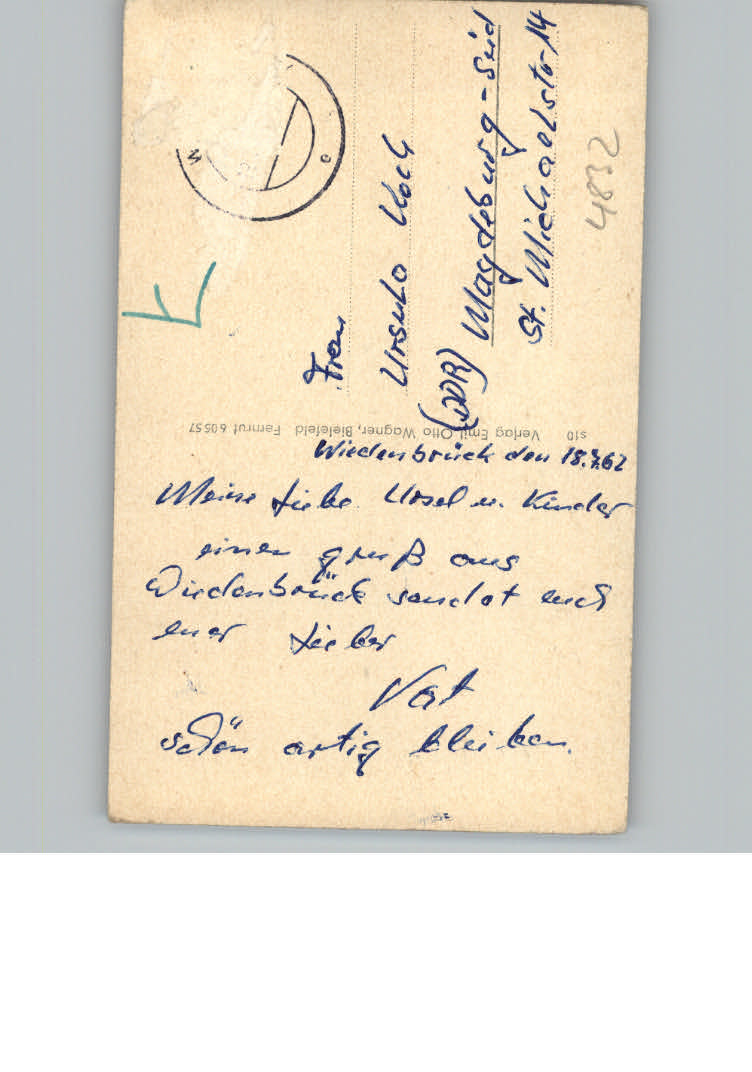 Frau
Ursula Koch
(DDR) Magdeburg-Süd
St. Michaelstr. 14
4832
s10 Verlag Emil Otto Wagner, Bielefeld Fernruf 60557
Wiedenbrück den 18.7.62
Meine Liebe Ursel u. Kinder
einen gruß aus
Wiedenbrück sendet euch
euer Lieber
Vat
schön artig bleiben.